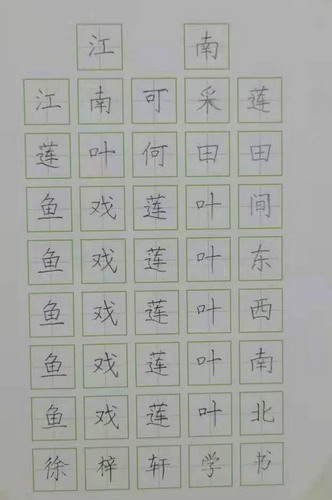 江南
江南可采莲
莲叶何田田
鱼戏莲叶间
鱼戏莲叶东
鱼戏莲叶西
鱼戏莲叶南
鱼戏莲叶北
徐梓轩学书